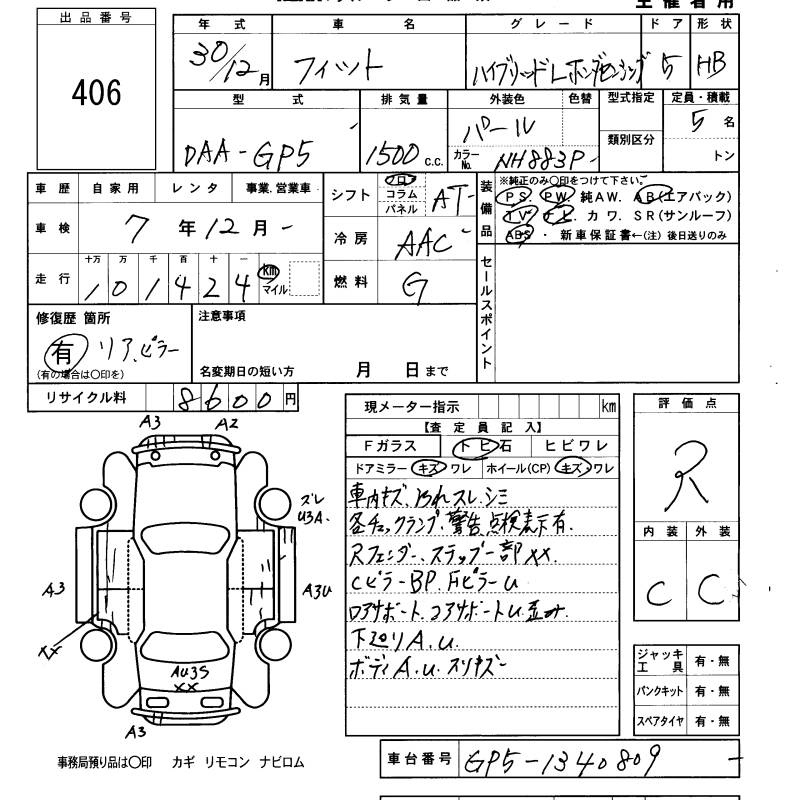 主催者用
出品番号
406
年式 車名 グレード ドア 形状
30/12月 フィット ハイブリッドLホンダセンシング 5 HB
型式 排気量 外装色 色替 型式指定 定員・積載
DAA-GP5 1500c.c. パール 類別区分 5名
カラーNo. NH883P- トン
車歴 自家用 レンタ 事業.営業車 シフト フロ コラム パネル AT-
装備品 ※純正のみ○印をつけて下さい。
PS. PW. 純AW. AB(エアバック)
TV ナビ カワ. SR(サンルーフ)
ABS ・ 新車保証書←(注) 後日送りのみ
車検 7年12月- 冷房 AAC
走行 十万 万 千 百 十 一
101424 km マイル 燃料 G
セールスポイント
修復歴 箇所 注意事項
有 リア.ピラー
(有の場合は○印を) 名変期日の短い方 月 日まで
リサイクル料 8600円
現メーター指示 km
評価点
R
【査定員記入】
Fガラス トビ石 ヒビワレ
ドアミラー キズ ワレ ホイール(CP) キズ ワレ
車内キズ 汚れ スレ.シミ
各チェックランプ.警告.点検表示有.
Rフェンダー.ステップ一部XX.
CピラーBP.FピラーU
下廻りA.U.
ボディA.U.スリキズー
内装 外装
C C
A3 A2
ズレ
U3A.
A3 A3U
XX
AU3S
XX
A3
ジャッキ工具 有・無
パンクキット 有・無
スペアタイヤ 有・無
事務局預り品は○印 カギ リモコン ナビロム
車台番号 GP5-1340809 -